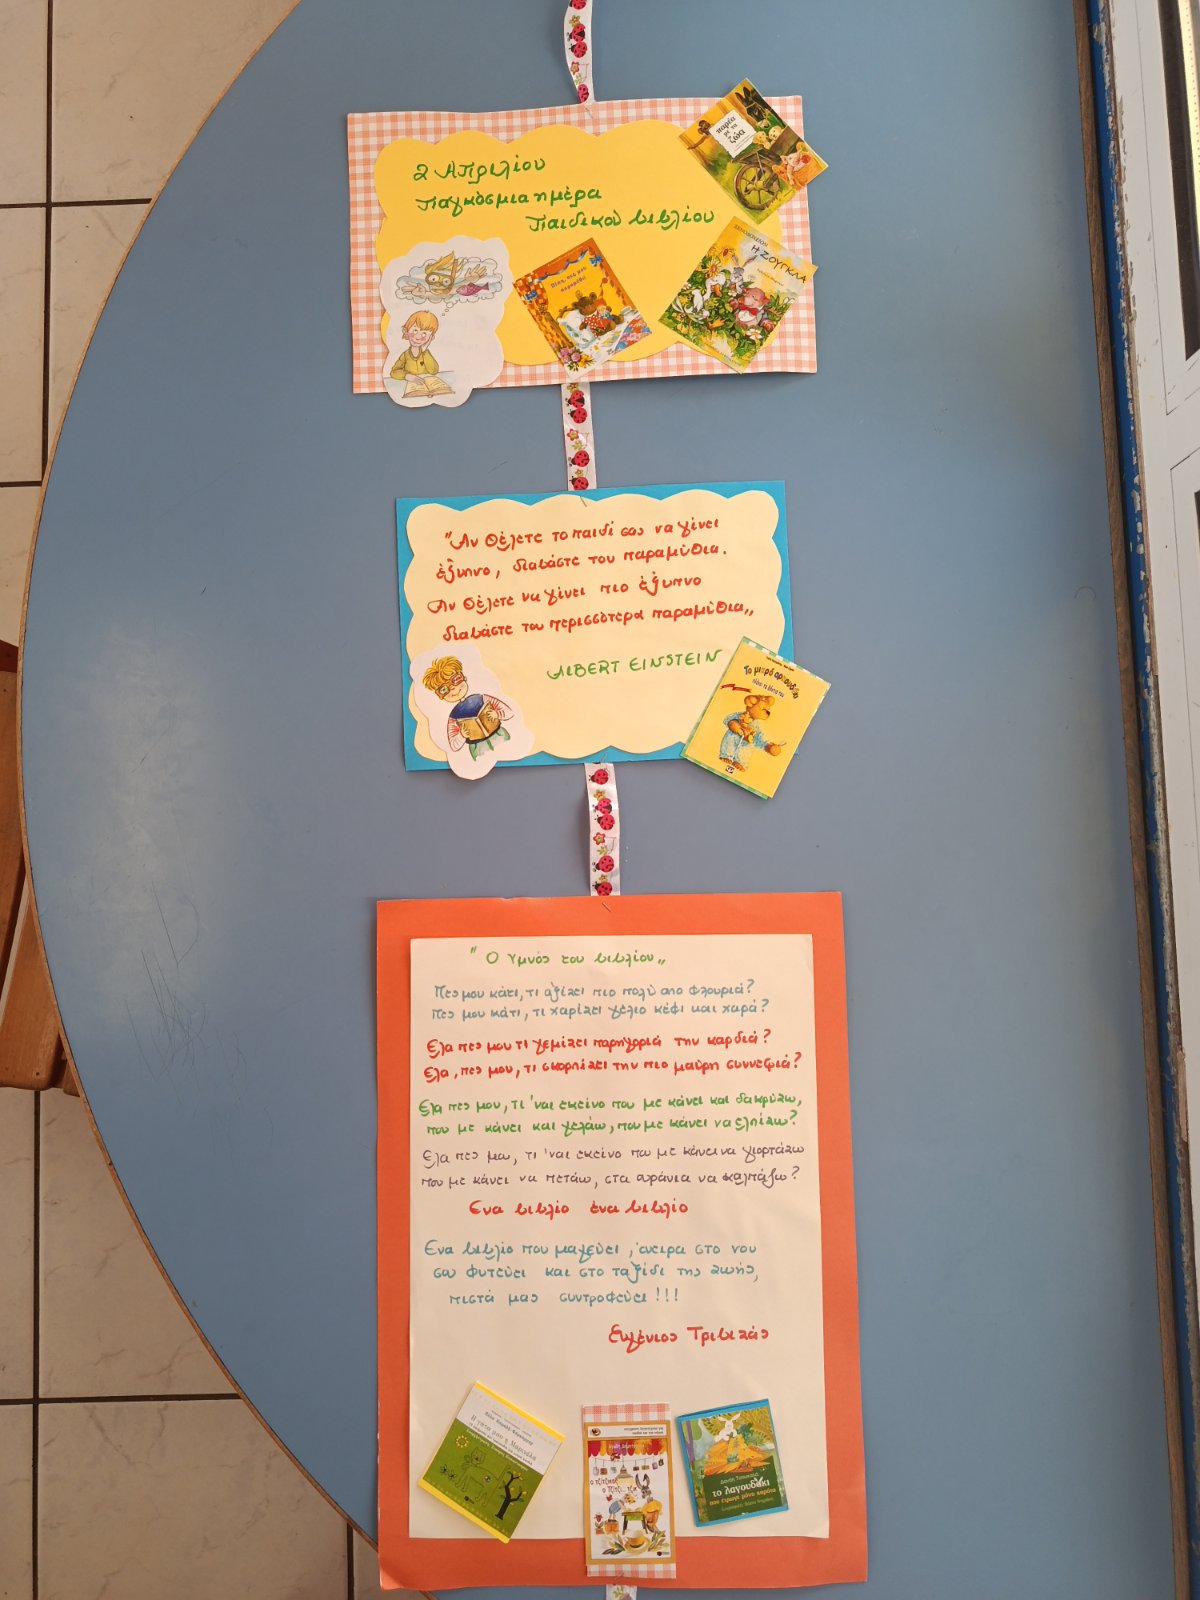 2 Απριλίου
Παγκόσμια ημέρα
Παιδικού βιβλίου
παρέα
με τα
ζώα
Η ΖΟΥΓΚΛΑ
Πέσ, πες μου
παραμύθι
"Αν θέλετε το παιδί σας να γίνει
έξυπνο, διαβάστε του παραμύθια.
Αν θέλετε να γίνει πιο έξυπνο
διαβάστε του περισσότερα παραμύθια,,
ALBERT EINSTEIN
Το μικρό αρκουδάκι
"Ο Υμνός του βιβλίου,,
Πες μου κάτι, τι αξίζει πιο πολύ απο φλουριά?
Πες μου κάτι, τι χαρίζει γέλιο κέφι και χαρά?
Ελα πες μου τι γεμίζει παρηγοριά την καρδιά?
Ελα, πες μου, τι σκορπίζει την πιο μαύρη συννεφιά?
Ελα πες μου, τι 'ναι εκείνο που με κάνει και δακρύζω,
που με κάνει και γελάω, που με κάνει να ελπίζω?
Ελα πες μου, τι 'ναι εκείνο που με κάνει να γιορτάζω
που με κάνει να πετάω, στα ουράνια να καλπάζω?
Ενα βιβλίο ένα βιβλίο
Ενα βιβλίο που μαγεύει, όνειρα στο νου
σου φυτεύει και στο ταξίδι της ζωής,
πιστά μας συντροφεύει!!!
Ευγένιος Τριβιζάς
Η γάτα μου η Μαριγούλα
ο τζίτζικας
ο τζίτζι... τζι
το λαγουδάκι
που έτρωγε μόνο καρότα